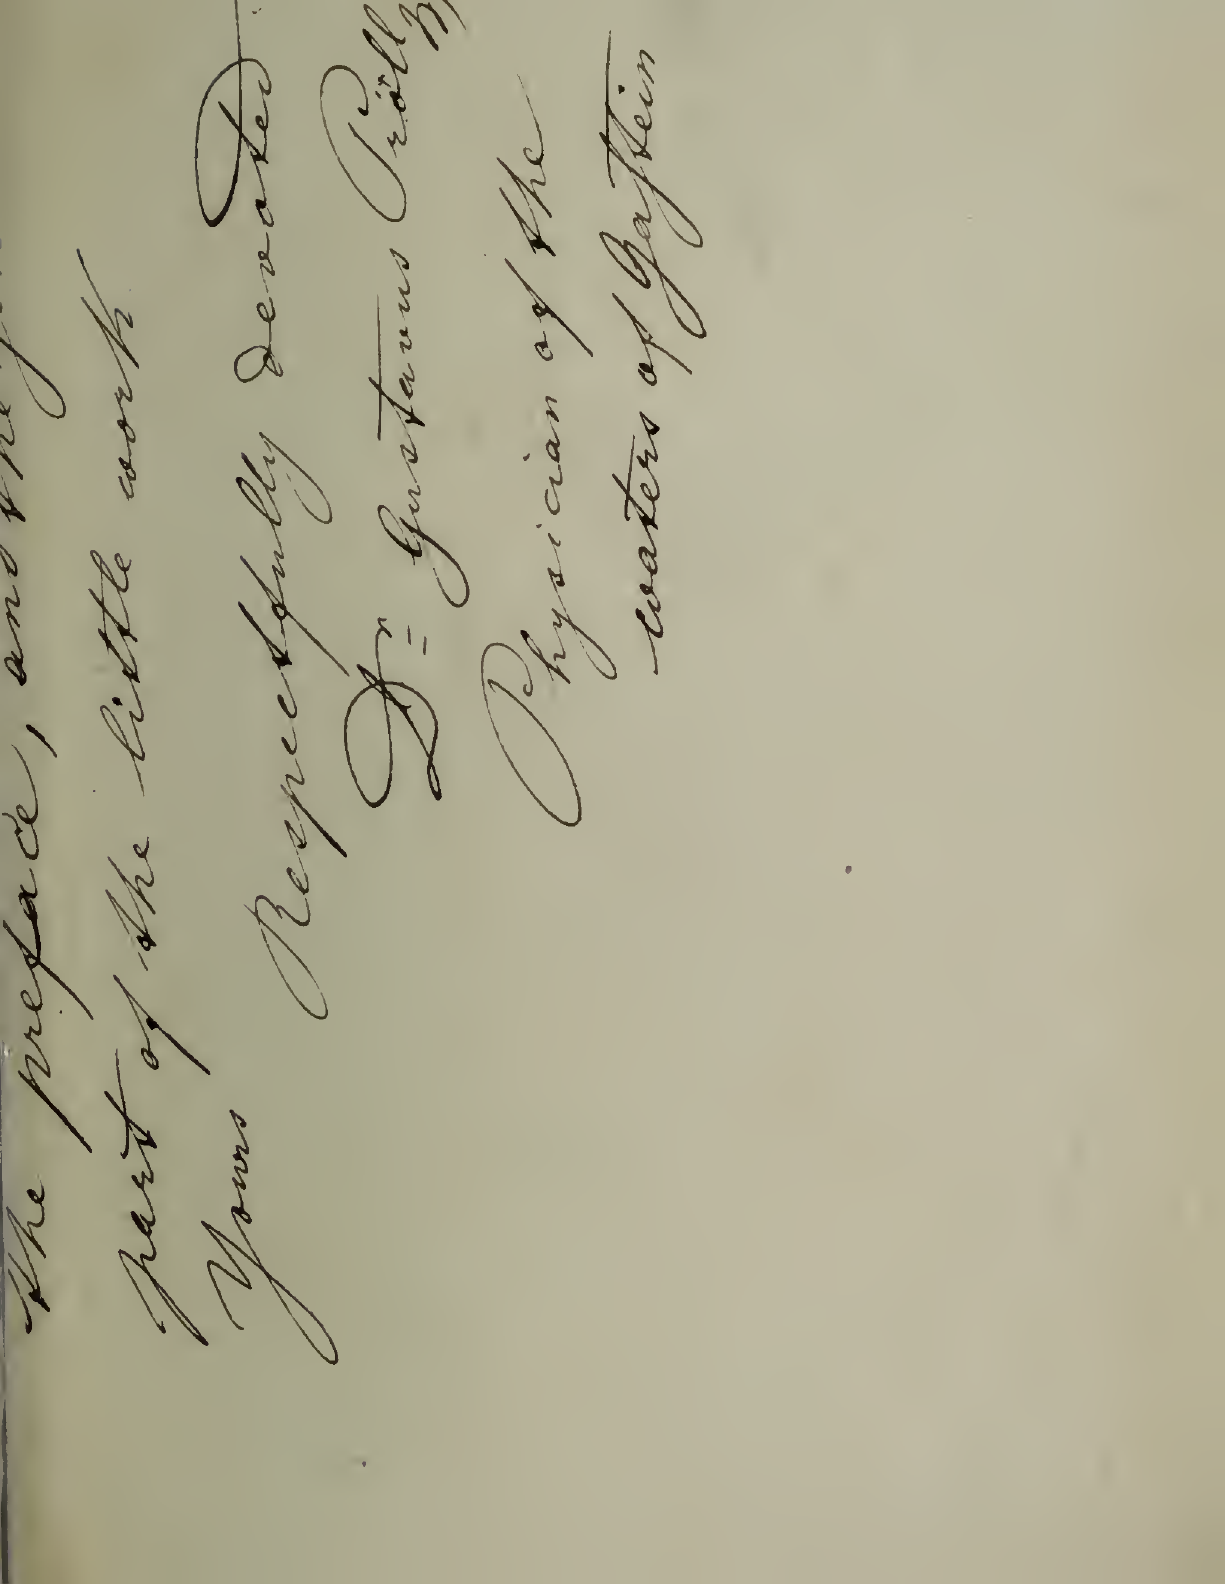 the preface, and the
part of the little work
Yours Respectfully devoted
Dr Gustavus Pröll
Physician of the
waters of Gastein